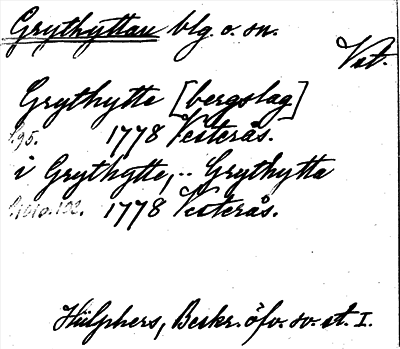 Grythyttan blg. o. sn.
Vst.
Grythytte [bergslag]
s. 95. 1778 Vesterås.
i Grythytte, .. Grythytta
1778 Vesterås.
Hülphers, Beskr. öfv. sv. st. I.